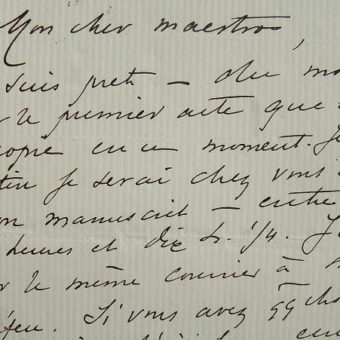 Mon cher maestro,
suis prêt — du m
r le premier acte que
copie en ce moment. Je
tin je serai chez vous
on manuscrit — entre
heures et dix h. 1/4. J
r le même courrier à
feu. Si vous avez qq ch